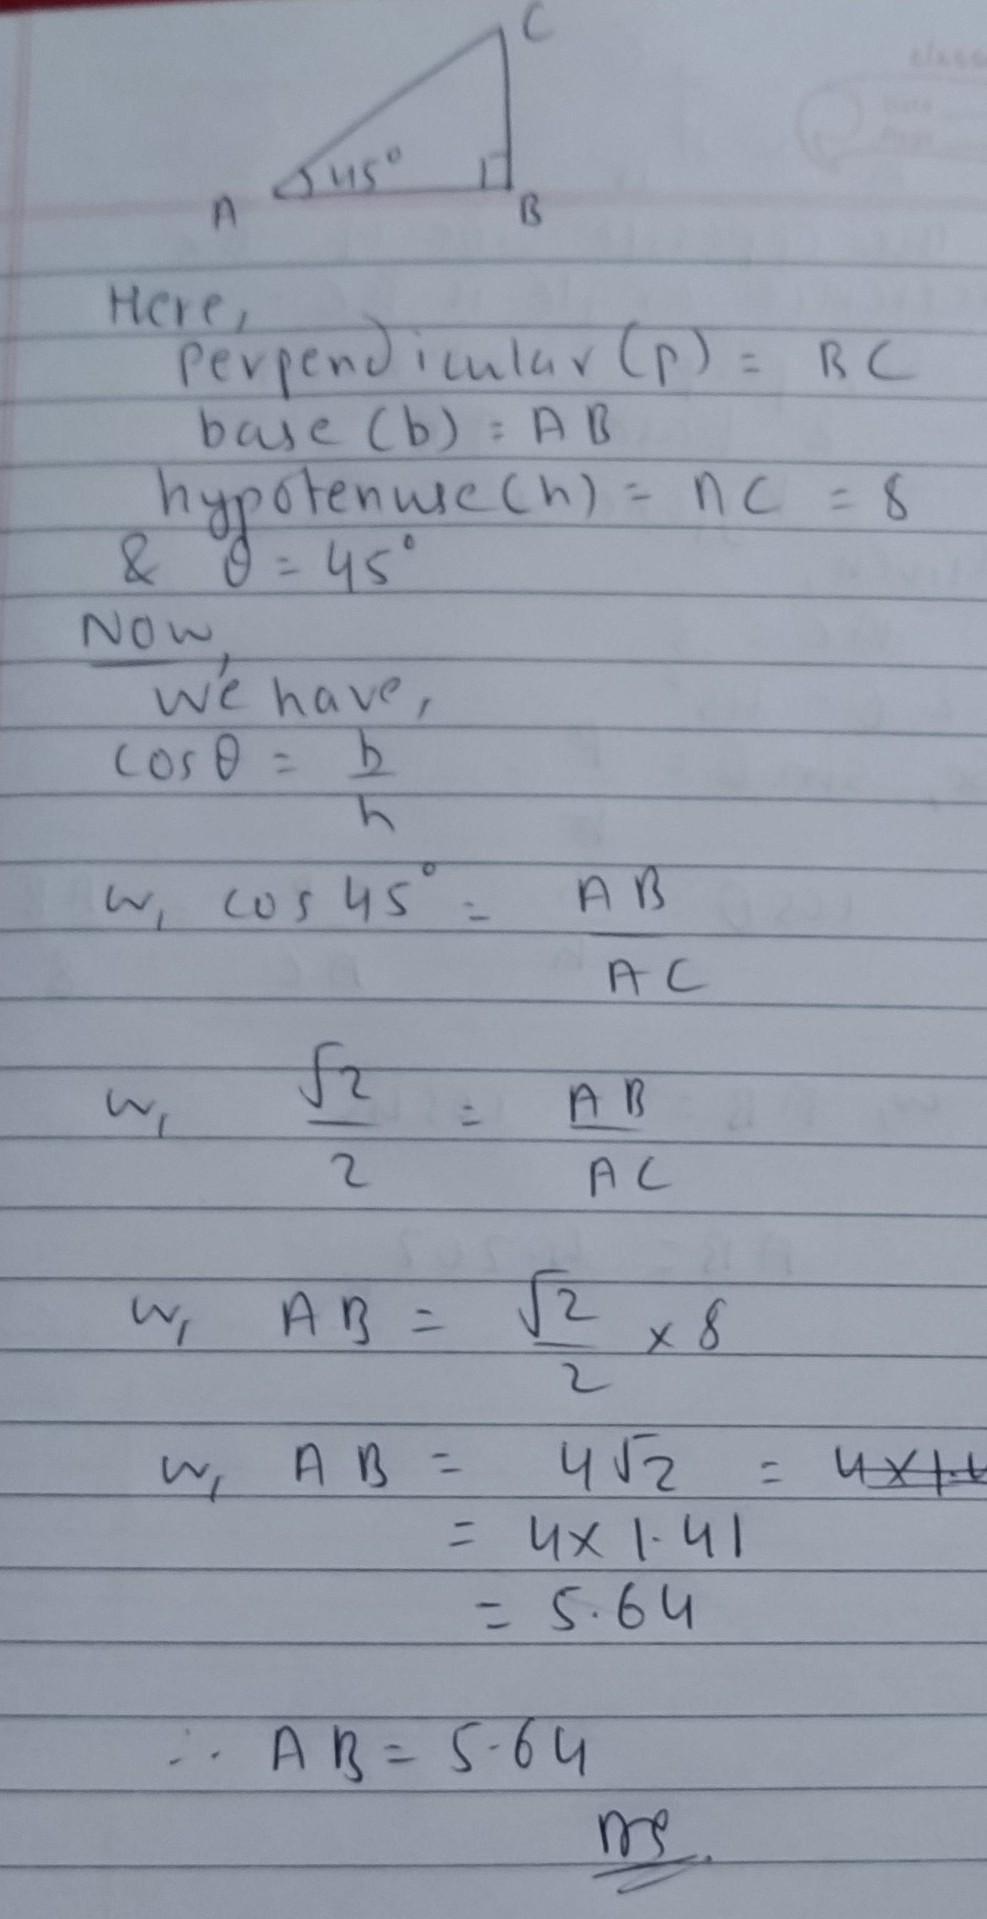 C
45°
A
B
Here,
Perpendicular (p) = BC
base (b) = AB
hypotenuse (h) = AC = 8
& θ = 45°
Now,
We have,
cosθ = b/h
w, cos 45° = AB/AC
w, √2/2 = AB/AC
w, AB = √2/2 × 8
w, AB = 4√2 =
= 4 × 1.41
= 5.64
∴ AB = 5.64